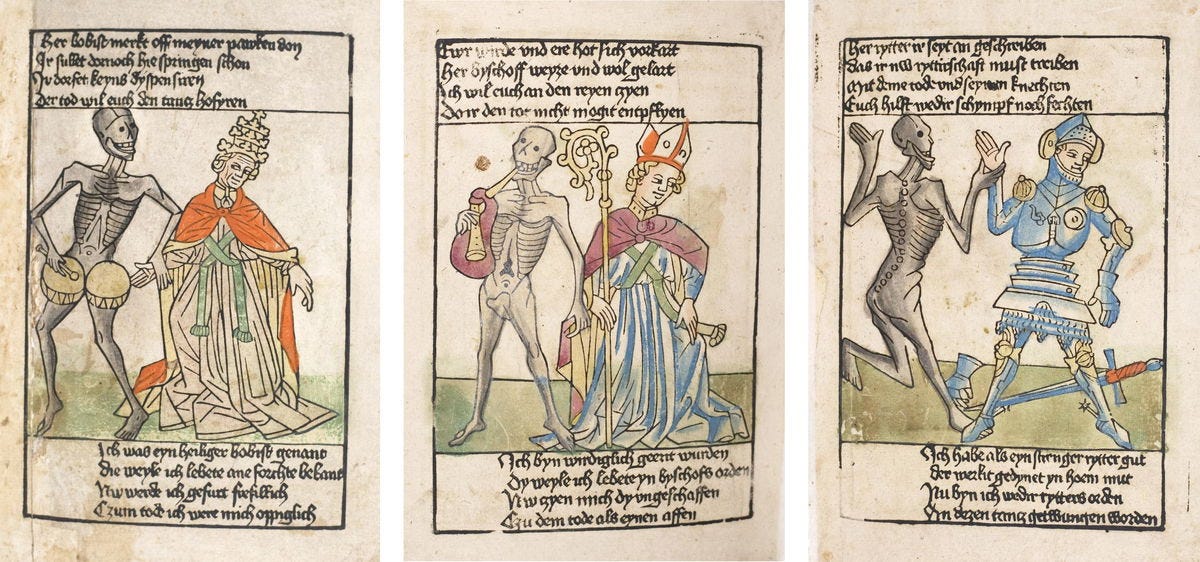 Her bobist merkt off meyner pawken don
Ir sullet dornoch hie springen schon
Ir dorfet keyns dyspensiren
Der tod wil euch den tantz hofyren
Ich was eyn heiliger bobist genant
Die weyle ich lebete ane forchte bekant
Nw werde ich gefurt freßlich
Czum tode ich were mich oppiglich
Ewr wirde vnd ere hot sich vorkart
Her byschoff weyze vnd wol gelart
Ich wil euch an den reyen czyen
Do ir den tot nicht mogit entpflyen
Ich byn wirdiglich geert wurden
Dy weyle ich lebete yn byschofs orden
Nw czyen mich dy vngeschaffen
Czu dem tode als eynen affen
Her rytter ir seyt an geschreiben
Das ir nw rytterschaft must treiben
Mit deme tode vnd seynen knechten
Euch hilft wedir schympf noch fechten
Ich habe als eyn strenger rytter gut
Der werlt gedynet yn hoem mut
Nu byn ich wedir rytters orden
An dezen tantz getwungen worden